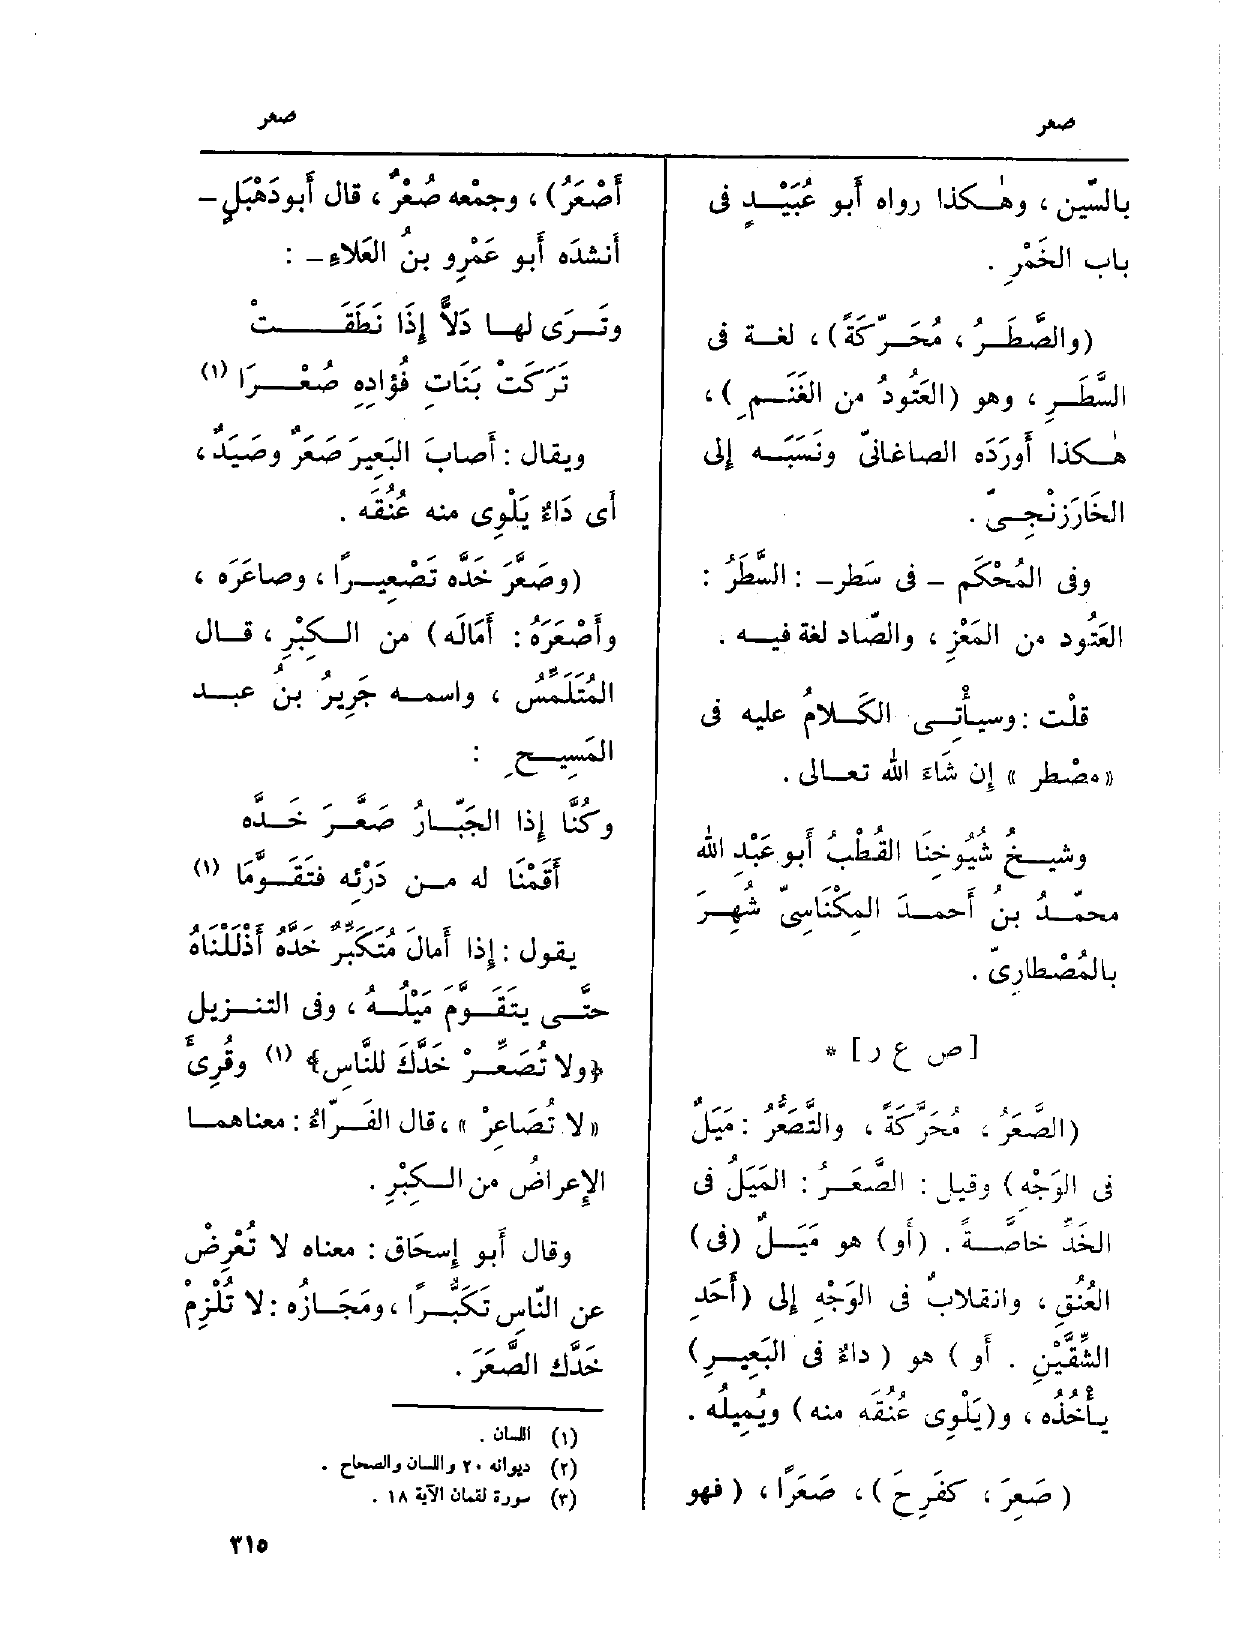 صعر
صعر
بالسِّين ، وهٰكذا رواه أبو عُبَيْدٍ فى
باب الخَمْرِ .
(والصَّطَرُ ، مُحَرّكَةً) ، لغة فى
السَّطَرِ ، وهو (العَتُودُ من الغَنَمِ) ،
هٰكذا أَورَدَه الصاغانىّ ونَسَبَه إلى
الخَارْزَنْجِىّ .
وفى المُحْكَم – فى سَطر– : السَّطَرُ :
العَتُود من المَعْزِ ، والصّاد لغة فيه .
قلْت : وسيأْتِى الكَلامُ عليه فى
«مصْطر » إن شَاءَ الله تعالى .
وشيخُ شُيُوخِنَا القُطْبُ أَبو عَبْدِ الله
محمّدُ بنُ أَحمدَ المِكْنَاسِىّ شُهِرَ
بالمُصْطارِىّ .
[ ص ع ر ] *
(الصَّعَرُ ، مُحَرَّكَةً ، والتَّصَعُّرُ : مَيَلٌ
فى الوَجْه) وقيل : الصَّعَرُ : المَيَلُ فى
الخَدِّ خاصَّةً . (أَو) هو مَيَلٌ (فى)
العُنُق ، وانقلابٌ فى الوَجْهِ إلى (أَحَدِ
الشِّقَّيْنِ . أَو ) هو ( داءٌ فى البَعِيرِ)
يأْخُذُه ، و(يَلْوِى عُنُقَه منه) ويُمِيلُه .
( صَعِرَ ، كفَرِحَ ) ، صَعَرًا ، ( فهو
أَصْعَرُ) ، وجمْعه صُعْرٌ ، قال أَبو دَهْبَلٍ –
أَنشدَه أَبو عَمْرِو بنُ العَلاءِ – :
وتَرَى لها دَلاًّ إِذَا نَطَقَتْ
تَرَكَتْ بَنَاتِ فُؤادِهِ صُعْرَا (١)
ويقال : أَصابَ البَعِيرَ صَعَرٌ وصَيَدٌ ،
أَى دَاءٌ يَلْوِى منه عُنُقَه .
(وصَعَّرَ خَدَّه تَصْعِيرًا ، وصاعَرَه ،
وأَصْعَرَهُ : أَمَالَه ) من الكِبْرِ ، قال
المُتَلَمِّسُ ، واسمه جَرِيرُ بنُ عبد
المَسِيحِ :
وكُنَّا إِذا الجَبّارُ صَعَّرَ خَدَّه
أَقَمْنَا له من دَرْئِه فتَقَوَّمَا (١)
يقول : إِذا أَمالَ مُتَكَبِّرٌ خَدَّهُ أَذْلَلْنَاهُ
حتَّى يتَقَوَّمَ مَيْلُهُ ، وفى التنزيل
﴿ولا تُصَعِّرْ خَدَّكَ للنَّاسِ﴾ (١) وقُرِئَ
«لا تُصَاعِرْ » ، قال الفَرّاءُ : معناهما
الإعراضُ من الكِبْرِ .
وقال أَبو إِسحَاق : معناه لا تُعْرِضْ
عن النّاسِ تَكَبُّرًا ، ومَجَازُه : لا تُلْزِمْ
خَدَّك الصَّعَرَ .
(١) اللسان .
(٢) ديوانه ٢٠ واللسان والصحاح .
(٣) سورة لقمان الآية ١٨ .
٣١٥